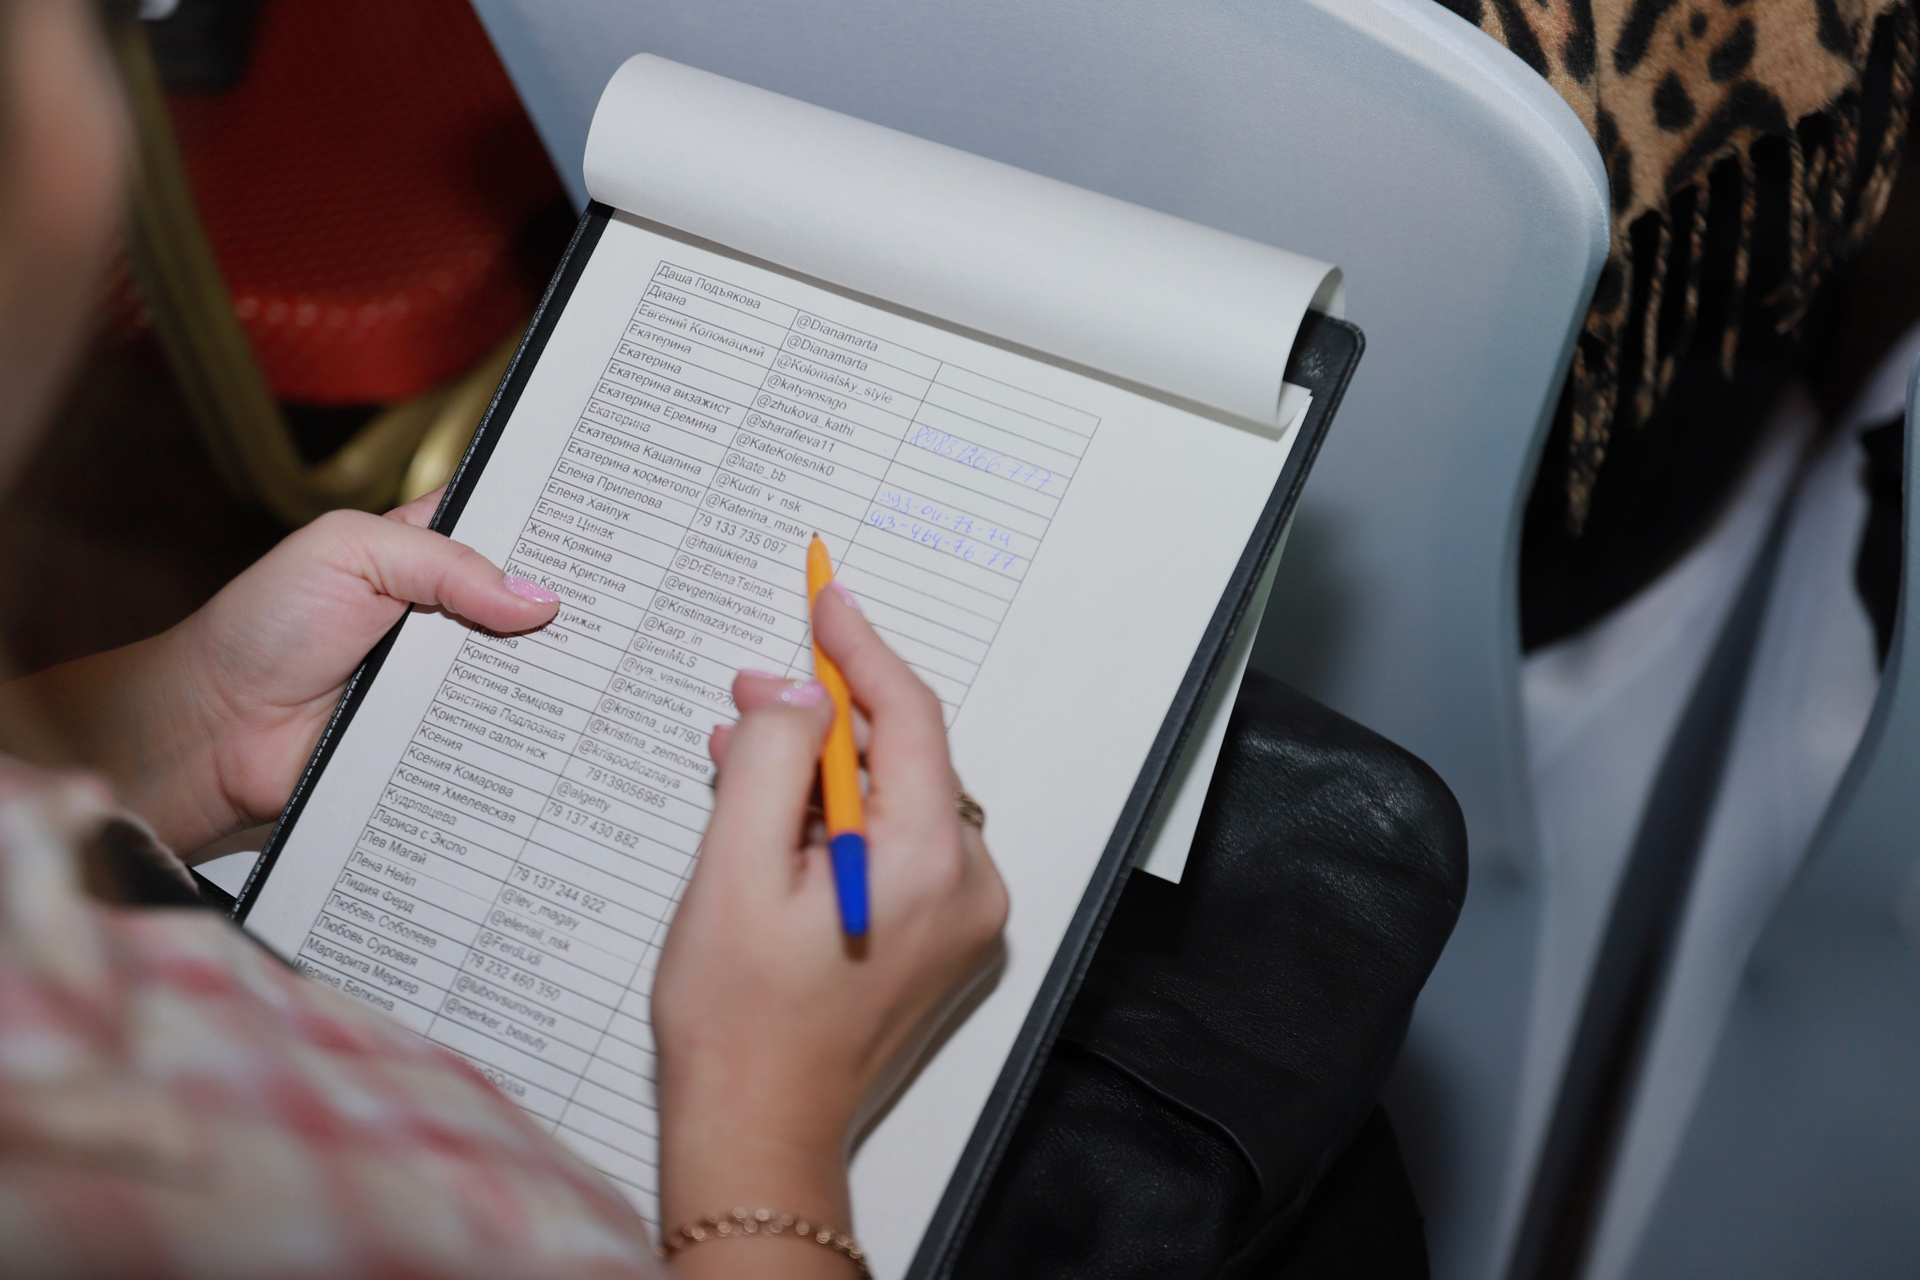 Даша Подъякова @Dianamarta
Диана @Dianamarta
Евгений Коломацкий @Kolomatsky_style
Екатерина @katyaosago
Екатерина @zhukova_kathi
Екатерина визажист @sharafieva11
Екатерина Еремина @KateKolesnik0
Екатерина @kate_bb
Екатерина Кацапина @Kudri_v_nsk
Екатерина косметолог @Katerina_matw
Елена Прилепова 79 133 735 097
Елена Хайлук @hailuklena
Елена Цинак @DrElenaTsinak
Женя Крякина @evgeniiakryakina
Зайцева Кристина @Kristinazaytceva
Инна Карпенко @Karp_in
@irenMLS
Карина @KarinaKuka
Кристина @kristina_u4790
Кристина Земцова @kristina_zemcowa
Кристина Подлозная @krispodloznaya
Кристина салон нск 79139056965
Ксения @algetty
Ксения Комарова 79 137 430 882
Ксения Хмелевская
Кудрявцева
Лариса с Экспо 79 137 244 922
Лев Магай @lev_magay
Лена Нейл @elenail_nsk
Лидия Ферд @FerdLidi
Любовь Соболева 79 232 460 350
Любовь Суровая @lubovsurovaya
Маргарита Меркер @merker_beauty
Марина Белкина